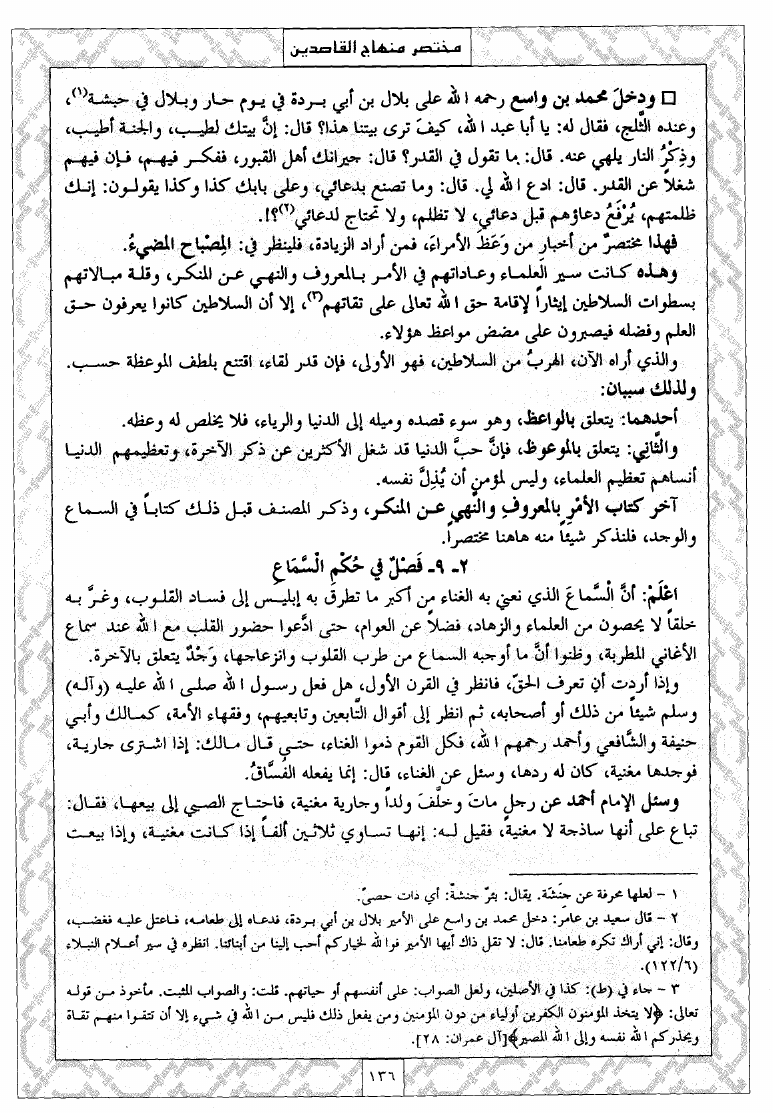 مختصر منهاج القاصدين
□ ودخلَ محمد بن واسع رحمه الله على بلال بن أبي بردة في يوم حار وبلال في حبشة(١)،
وعنده الثَّلج، فقال له: يا أبا عبد الله، كيفَ ترى بيتنا هذا؟ قال: إنَّ بيتك لطيب، والجنة أطيب،
وذِكْرُ النار يلهي عنه. قال: ما تقول في القدر؟ قال: جيرانك أهل القبور، ففكر فيهم، فإن فيهم
شغلاً عن القدر. قال: ادع الله لي. قال: وما تصنع بدعائي، وعلى بابك كذا وكذا يقولون: إنك
ظلمتهم، يُرْفَعُ دعاؤهم قبل دعائي، لا تظلم، ولا تحتاج لدعائي(٢)؟!.
فهذا مختصرٌ من أخبارِ من وَعَظَ الأمراءَ، فمن أراد الزيادة، فلينظر في: المِصْباح المضيءُ.
وهذه كانت سير العلماء وعاداتهم في الأمر بالمعروف والنهي عن المنكر، وقلة مبالاتهم
بسطوات السلاطين إيثاراً لإقامة حق الله تعالى على تقاتهم(٣)، إلا أن السلاطين كانوا يعرفون حق
العلم وفضله فيصبرون على مضض مواعظ هؤلاء.
والذي أراه الآن، الهربُ من السلاطين، فهو الأولى، فإن قدر لقاء، اقتنع بلطف الموعظة حسب.
ولذلك سببان:
أحدهما: يتعلق بالواعظ، وهو سوء قصده وميله إلى الدنيا والرياء، فلا يخلص له وعظه.
والثَّاني: يتعلق بالموعوظ، فإنَّ حبَّ الدنيا قد شغل الأكثرين عن ذكر الآخرة، وتعظيمهم الدنيا
أنساهم تعظيم العلماء، وليس لمؤمنٍ أن يُذِلَّ نفسه.
آخر كتاب الأمْرِ بالمعروفِ والنَّهي عن المنكر، وذكر المصنف قبل ذلك كتاباً في السماع
والوجد، فلنذكر شيئاً منه هاهنا مختصراً.
٢- ٩- فَصْلٌ في حُكْمِ الْسَّمَاعِ
اعْلَمْ: أنَّ الْسَّماعَ الذي نعني به الغناء من أكبر ما تطرق به إبليس إلى فساد القلوب، وغرَّ به
خلقاً لا يحصون من العلماء والزهاد، فضلاً عن العوام، حتى ادَّعوا حضور القلب مع الله عند سماع
الأغاني المطربة، وظنوا أنَّ ما أوجبه السماع من طرب القلوب وانزعاجها، وَجْدٌ يتعلق بالآخرة.
وإذا أردت أن تعرف الحقّ، فانظر في القرن الأول، هل فعل رسول الله صلى الله عليه (وآله)
وسلم شيئاً من ذلك أو أصحابه، ثم انظر إلى أقوال التَّابعين وتابعيهم، وفقهاء الأمة، كمالك وأبي
حنيفة والشَّافعي وأحمد رحمهم الله، فكل القوم ذموا الغناء، حتى قال مالك: إذا اشترى جارية،
فوجدها مغنية، كان له ردها، وسئل عن الغناء، قال: إنما يفعله الفُسَّاقُ.
وسئل الإمام أحمد عن رجلٍ ماتَ وخلَّفَ ولداً وجارية مغنية، فاحتاج الصبي إلى بيعها، فقال:
تباع على أنها ساذجة لا مغنية، فقيل له: إنها تساوي ثلاثين ألفاً إذا كانت مغنية، وإذا بيعت
١ - لعلها محرفة عن جَنَشَة. يقال: بئرٌ جنشةٌ: أي ذات حصىً.
٢ - قال سعيد بن عامر: دخل محمد بن واسع على الأمير بلال بن أبي بردة، فدعاه إلى طعامه، فاعتل عليه فغضب،
وقال: إني أراك تكره طعامنا. قال: لا تقل ذاك أيها الأمير فوالله لخياركم أحب إلينا من أبنائنا. انظره في سير أعلام النبلاء
(٦/١٢٢).
٣ - جاء في (ط): كذا في الأصلين، ولعل الصواب: على أنفسهم أو حياتهم. قلت: والصواب المثبت. مأخوذ من قوله
تعالى: ﴿لا يتخذ المؤمنون الكفرين أولياء من دون المؤمنين ومن يفعل ذلك فليس من الله في شيء إلا أن تتقوا منهم تقاة
ويحذركم الله نفسه وإلى الله المصير﴾[آل عمران: ٢٨].
١٣٦